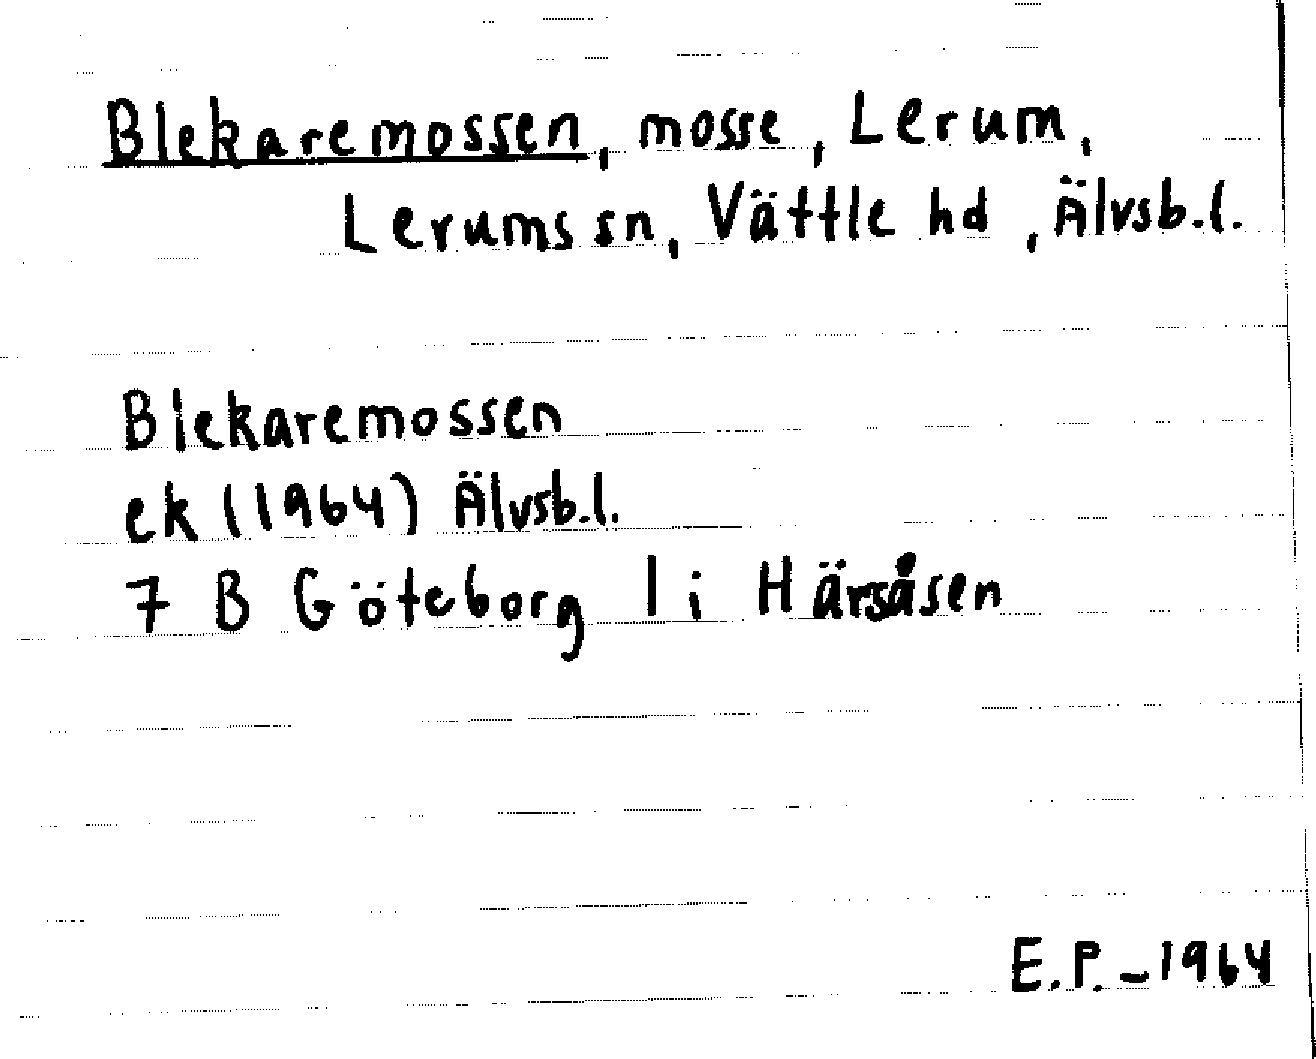 Blekaremossen, mosse, Lerum,
Lerums sn, Vättle hd, Älvsb.l.
Blekaremossen
ek (1964) Älvsb.l.
7 B Göteborg 1 i Härsåsen
E.P. - 1964